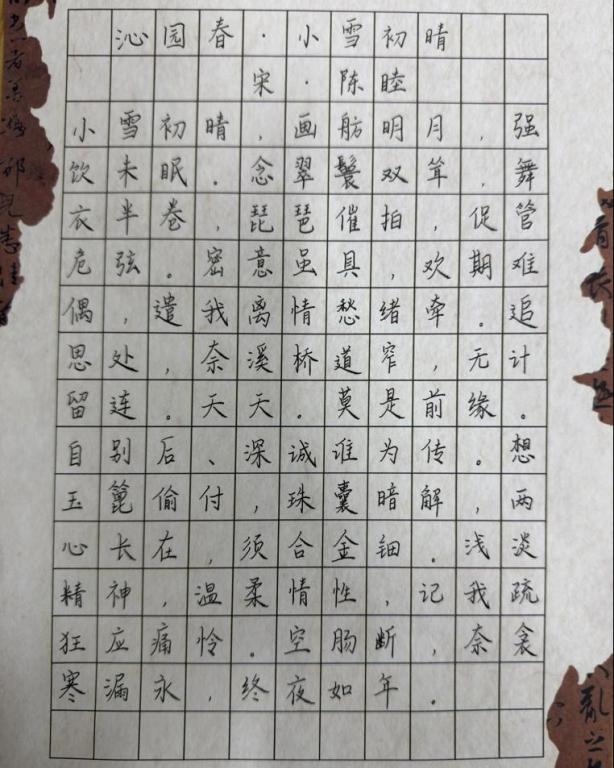 沁园春·小雪初晴
宋·陈睦
小雪初晴，画舫明月，强
饮未眠。念翠鬟双耸，舞
衣半卷，琵琶催拍，促管
危弦。密意虽具，欢期难
偶，遣我离情愁绪牵。追
思处，奈溪桥道窄，无计
留连。天天。莫是前缘。
自别后、深诚谁为传。想
玉篦偷付，珠囊暗解，两
心长在，须合金钿。浅淡
精神，温柔情性，记我疏
狂应痛怜。空肠断，奈衾
寒漏永，终夜如年。